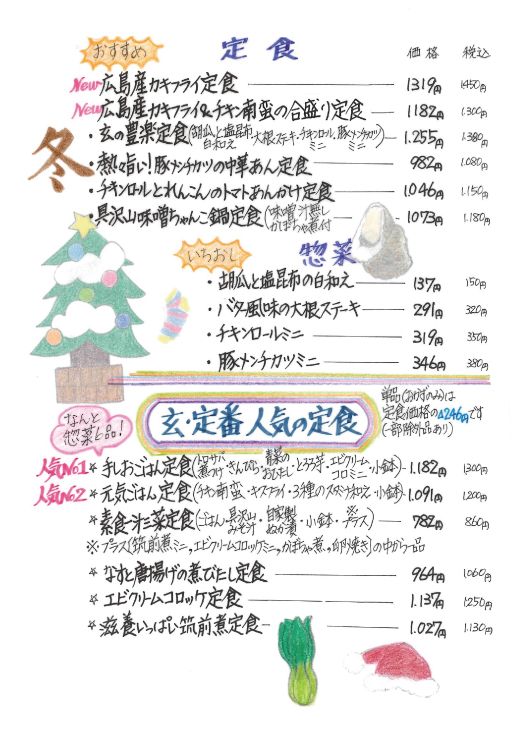 おすすめ 定食 価格 税込
New 広島産カキフライ定食 1319円 1450円
New 広島産カキフライ&チキン南蛮の合盛り定食 1182円 1.300円
・玄の豊楽定食(胡瓜と塩昆布白和え・大根ステーキ・チキンロールミニ・豚メンチカツミニ) 1.255円 1.380円
冬
・熱々旨い!豚メンチカツの中華あん定食 982円 1.080円
・チキンロールとれんこんのトマトあんかけ定食 1.046円 1.150円
・具沢山味噌ちゃんこ鍋定食(味噌汁無し かぼちゃ煮付) 1073円 1.180円
いちおし 惣菜
・胡瓜と塩昆布の白和え 137円 150円
・バター風味の大根ステーキ 291円 320円
・チキンロールミニ 319円 350円
・豚メンチカツミニ 346円 380円
なんと惣菜6品!
玄・定番人気の定食
単品(おかずのみ)は
定食価格の△246円です
(一部除外品あり)
人気No1 ☆手しおごはん定食(トロサバ煮つけ・きんぴら・青菜のおひたし・とろろ芋・エビクリームコロミニ・小鉢) 1.182円 1300円
人気No2 ☆元気ごはん定食(チキン南蛮・キスフライ・3種のスパイス和え・小鉢) 1.091円 1.200円
☆素食一汁三菜定食(ごはん・具沢山みそ汁・自家製ぬか漬・小鉢・※プラス) 782円 860円
※プラス[筑前煮ミニ、エビクリームコロッケミニ、かぼちゃ煮、卵焼き]の中から一品
☆なすと唐揚げの煮びたし定食 964円 1.060円
☆エビクリームコロッケ定食 1.137円 1.250円
☆滋養いっぱい筑前煮定食 1.027円 1.130円